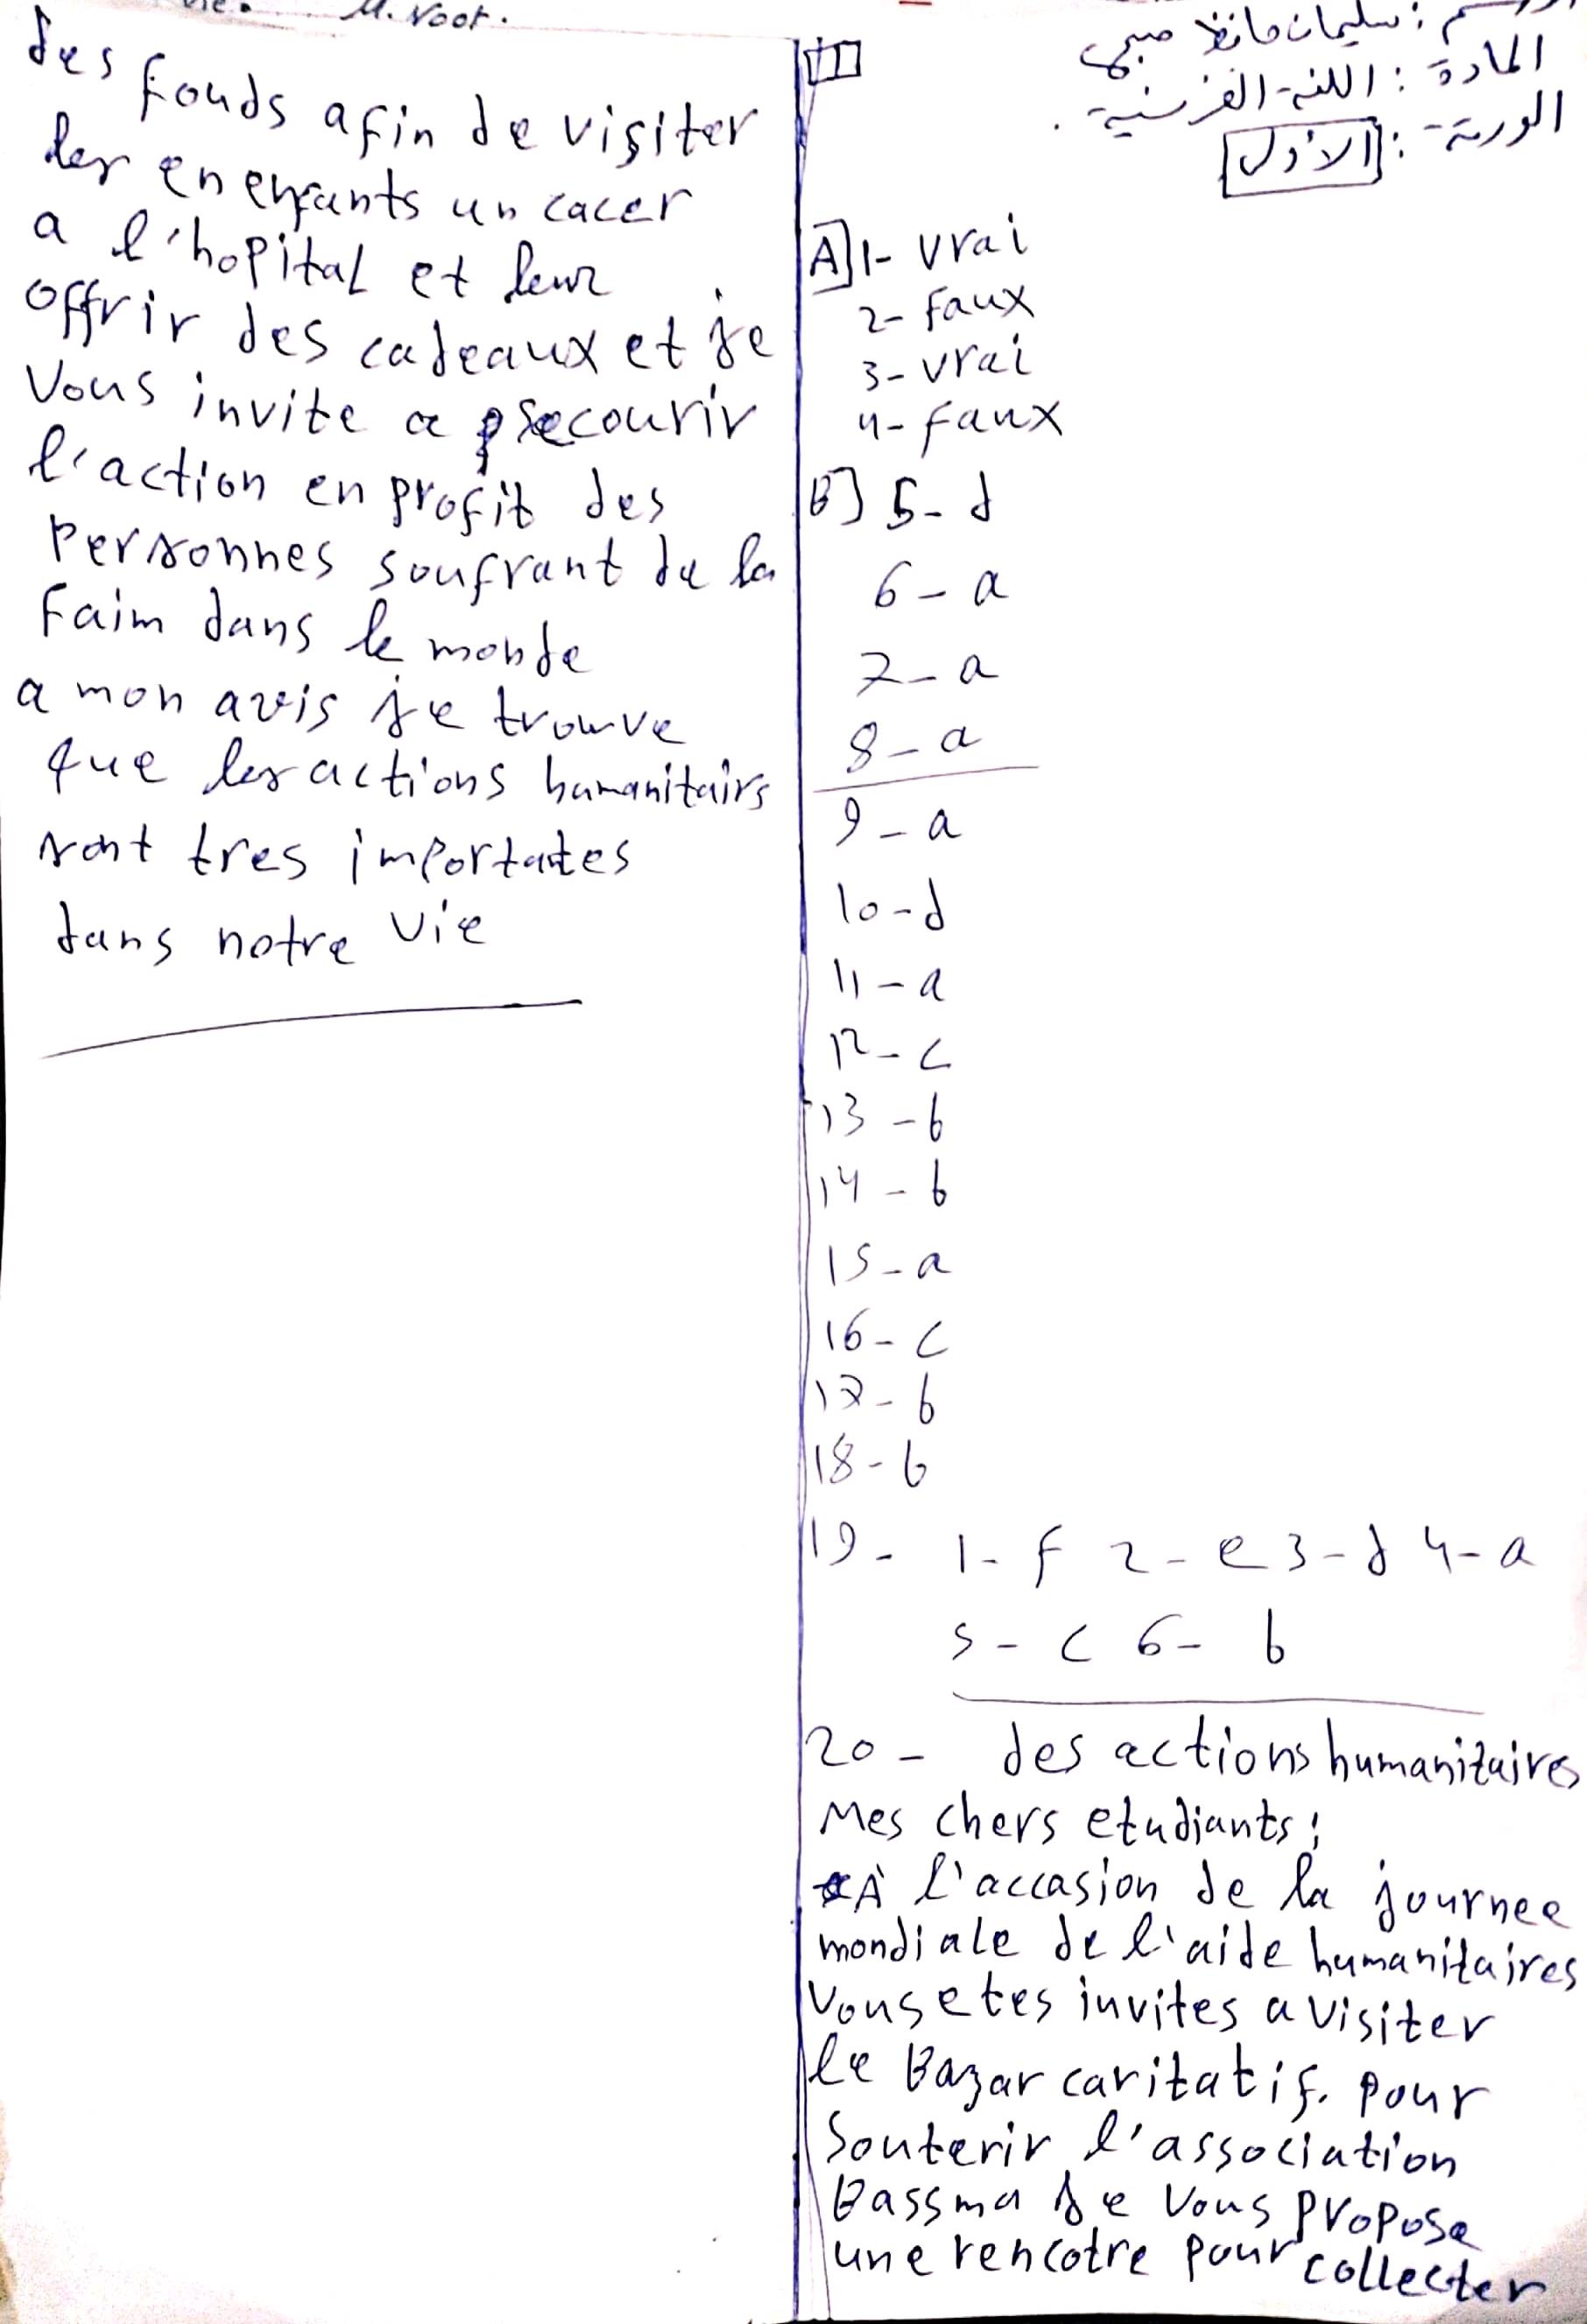 سم : سليمان حافظ صبحي
المادة : اللغة الفرنسية .
الورقة : الأول
A] 1- vrai
2- faux
3- vrai
4- faux
B] 5- d
6- a
7- a
8- a
9- a
10- d
11- a
12- c
13- b
14- b
15- a
16- c
17- b
18- b
19- 1- f 2- e 3- d 4- a
5- c 6- b
20- des actions humanitaires
Mes chers etudiants;
À l'accasion de la journee
mondiale de l'aide humanitaires
Vous etes invites a visiter
le Bazar caritatif. pour
Souterir l'association
Bassma je vous propose
une rencotre pour collecter
M. Noot.
des fonds afin de visiter
les en enfants un cacer
a l'hopital et leur
offrir des cadeaux et je
Vous invite a secourir
l'action en profit des
Personnes soufrant de la
Faim dans le monde
a mon avis je trouve
que les actions humanitairs
sont tres importates
dans notre vie